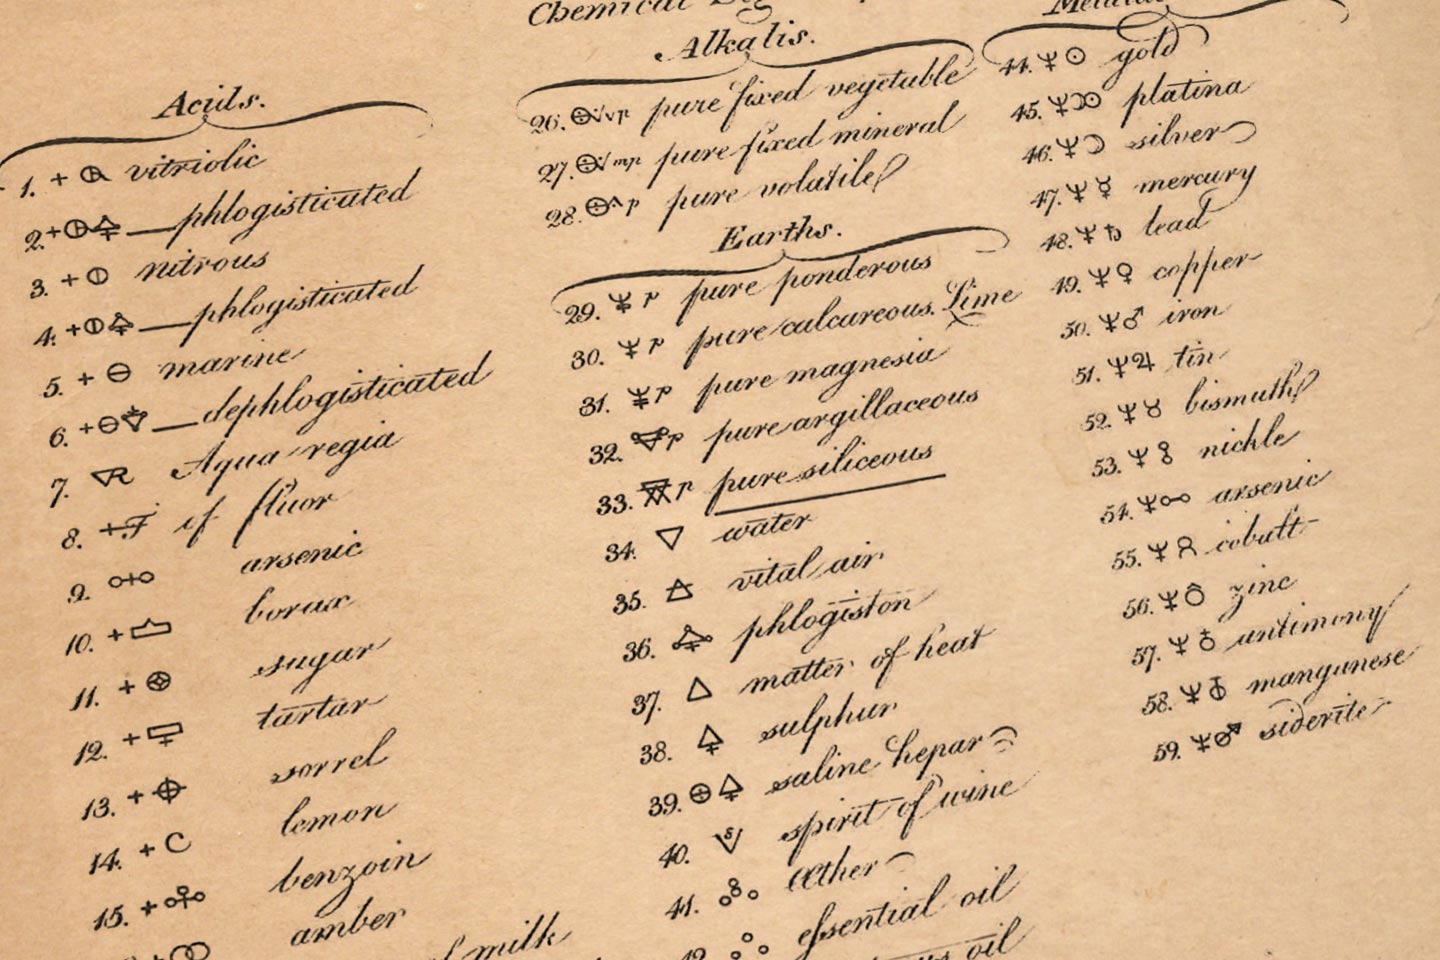 Chemical
Acids.
1. vitriolic
2. phlogisticated
3. nitrous
4. phlogisticated
5. marine
6. dephlogisticated
7. Aqua regia
8. of fluor
9. arsenic
10. borax
11. sugar
12. tartar
13. sorrel
14. lemon
15. benzoin
amber
of milk
Alkalis.
26. pure fixed vegetable
27. pure fixed mineral
28. pure volatile
Earths.
29. pure ponderous
30. pure calcareous. Lime
31. pure magnesia
32. pure argillaceous
33. pure siliceous
34. water
35. vital air
36. phlogiston
37. matter of heat
38. sulphur
39. saline hepar
40. spirit of wine
41. æther
42. eſsential oil
oil
44. gold
45. platina
46. silver
47. mercury
48. lead
49. copper
50. iron
51. tin
52. bismuth
53. nickle
54. arsenic
55. cobalt
56. zinc
57. antimony
58. manganese
59. siderite